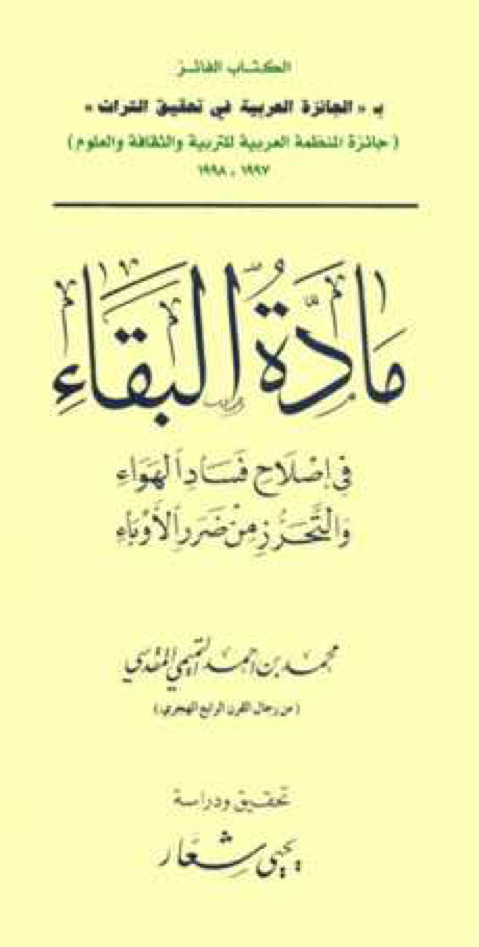 الكتاب الفائز
بـ «الجائزة العربية في تحقيق التراث»
(جائزة المنظمة العربية للتربية والثقافة والعلوم)
١٩٩٧ ، ١٩٩٨
مَادَّةُ البَقَاءِ
في إصْلَاحِ فَسَادِ الهَوَاءِ
وَالتَّحَرُّزِ مِنْ ضَرَرِ الأَوْبَاءِ
محمد بن أحمد التميمي المقدسي
(من رجال القرن الرابع الهجري)
تحقيق ودراسة
يحيى شعَّار